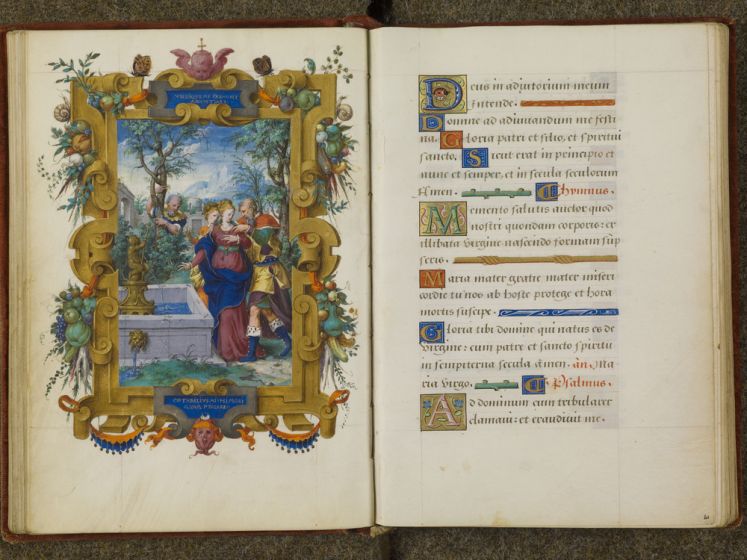 Deus in adjutorium meum
intende.
Domine ad adiuvandum me festi
na. Gloria patri et filio, et spiritui
sancto. Sicut erat in principio et
nunc et semper, et in secula seculorum
Amen. Hymnus.
Memento salutis auctor quod
nostri quondam corporis: ex
illibata virgine nascendo formam sūp
seris.
Maria mater gratie mater miseri
cordie tu nos ab hoste protege et hora
mortis suscipe.
Gloria tibi domine qui natus es de
virgine: cum patre et sancto spiritu
in sempiterna secula āmen. an. Ma
ria virgo. Psalmus.
Ad dominum cum tribularer
clamavi: et exaudivit me.